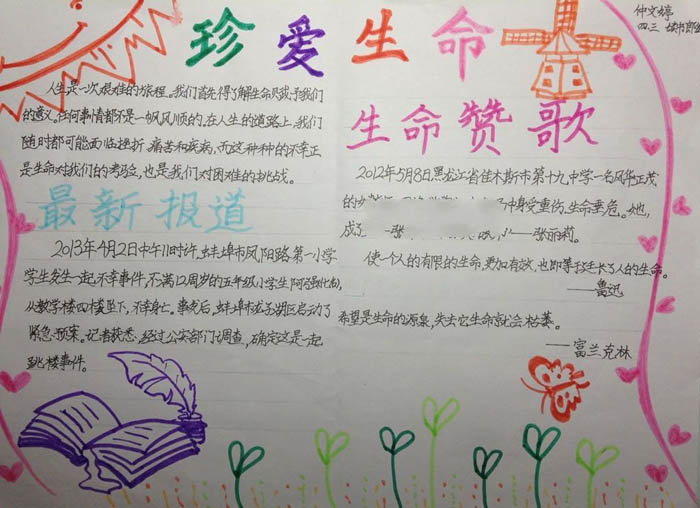 珍爱生命
仲文婷
四三
人生是一次艰难的旅程。我们首先得了解生命赋予我们
的意义,任何事情都不是一帆风顺的,在人生的道路上,我们
随时都可能面临挫折、痛苦和疾病,而这种种的不幸正
是生命对我们的考验,也是我们对困难的挑战。
最新报道
2013年4月2日中午11时许,蚌埠市凤阳路第一小学
学生发生一起不幸事件,不满12周岁的五年级小学生阿强
从教学楼四楼坠下,不幸身亡。事发后,蚌埠市龙子湖区启动了
紧急预案。记者获悉,经过公安部门调查,确定这是一起
跳楼事件。
生命赞歌
2012年5月8日,黑龙江省佳木斯市第十九中学一名风华正茂
的 中身受重伤,生命垂危。她,
成了 张丽莉。
使一个人的有限的生命,更加有效,也即等于延长了人的生命。
——鲁迅
希望是生命的源泉,失去它生命就会枯萎。
——富兰克林